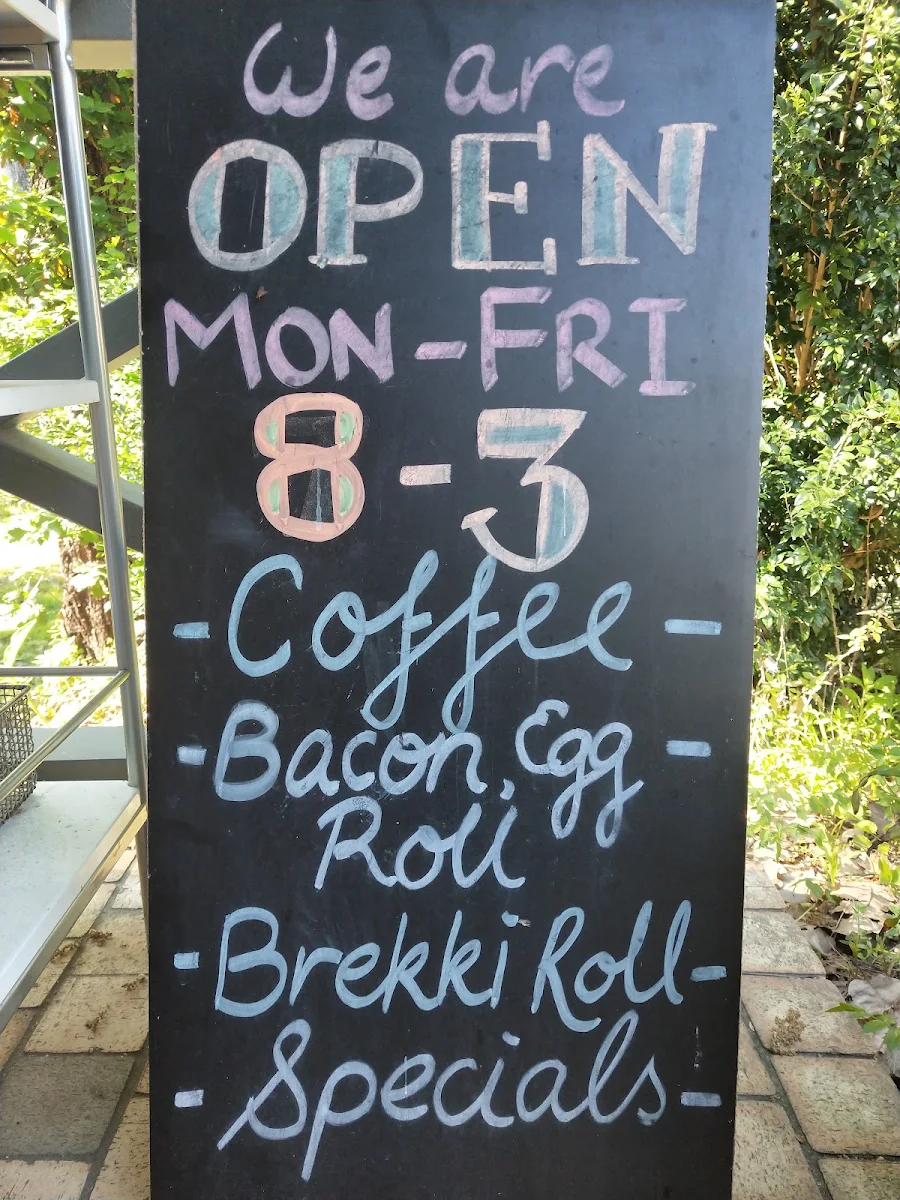 We are
OPEN
MON-FRI
8-3
- Coffee -
- Bacon, Egg -
Roll
- Brekki Roll -
- Specials -